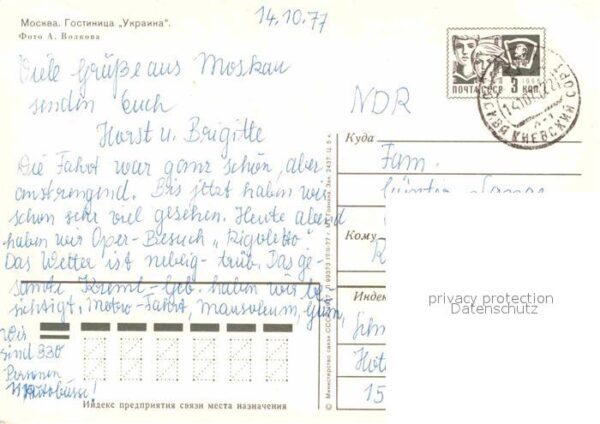 Москва. Гостиница „Украина“.
Фото А. Волкова
14.10.77
Viele Grüße aus Moskau
senden Euch
Horst u. Brigitte
Die Fahrt war ganz schön, aber
anstrengend. Bis jetzt haben wir
schon sehr viel gesehen. Heute abend
haben wir Oper-Besuch „Rigoletto“
Das Wetter ist neblig-trüb. Das ge-
samte Kreml-Geb. haben wir be-
sichtigt, Metro-Fahrt, Mausoleum, Gum,
Wir
sind 330
Personen
Autobusse!
Индекс предприятия связи места назначения
© Министерство связи СССР
ПОЧТА СССР
3 коп.
МОСКВА КИЕВСКИЙ
NDR
Куда
Fam.
Кому
Индекс
privacy protection
Datenschutz
15